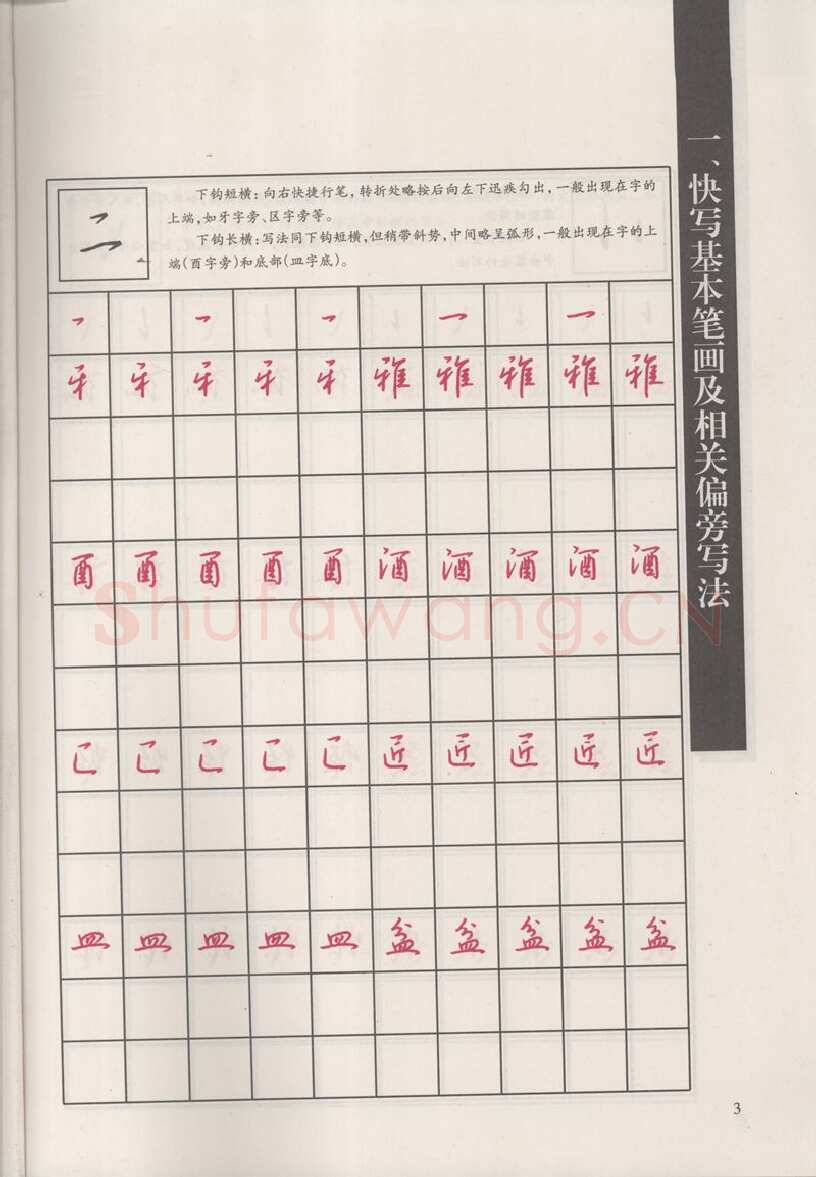 一、快写基本笔画及相关偏旁写法
下钩短横：向右快捷行笔，转折处略按后向左下迅疾勾出，一般出现在字的
上端，如牙字旁、区字旁等。
下钩长横：写法同下钩短横，但稍带斜势，中间略呈弧形，一般出现在字的上
端（酉字旁）和底部（皿字底）。
牙 牙 牙 牙 牙 雅 雅 雅 雅 雅
酉 酉 酉 酉 酉 酒 酒 酒 酒 酒
匚 匚 匚 匚 匚 匠 匠 匠 匠 匠
皿 皿 皿 皿 皿 盆 盆 盆 盆 盆
Shufawang.CN
3